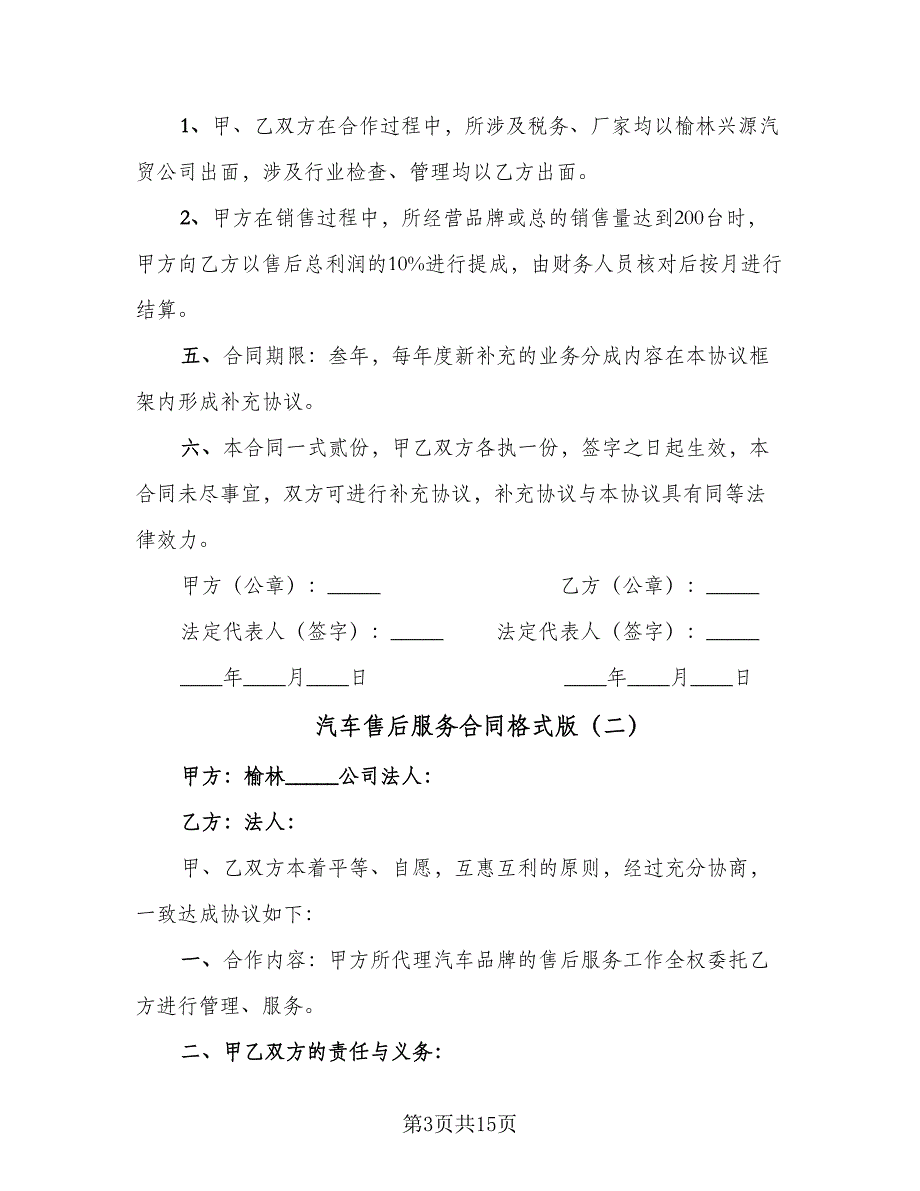 1、甲、乙双方在合作过程中，所涉及税务、厂家均以榆林兴源汽
贸公司出面，涉及行业检查、管理均以乙方出面。
2、甲方在销售过程中，所经营品牌或总的销售量达到200台时，
甲方向乙方以售后总利润的10%进行提成，由财务人员核对后按月进行
结算。
五、合同期限：叁年，每年度新补充的业务分成内容在本协议框
架内形成补充协议。
六、本合同一式贰份，甲乙双方各执一份，签字之日起生效，本
合同未尽事宜，双方可进行补充协议，补充协议与本协议具有同等法
律效力。
甲方（公章）：_____ 乙方（公章）：_____
法定代表人（签字）：_____ 法定代表人（签字）：_____
____年____月____日 ____年____月____日
汽车售后服务合同格式版（二）
甲方：榆林_____公司法人：
乙方：法人：
甲、乙双方本着平等、自愿，互惠互利的原则，经过充分协商，
一致达成协议如下：
一、合作内容：甲方所代理汽车品牌的售后服务工作全权委托乙
方进行管理、服务。
二、甲乙双方的责任与义务：
第3页共15页